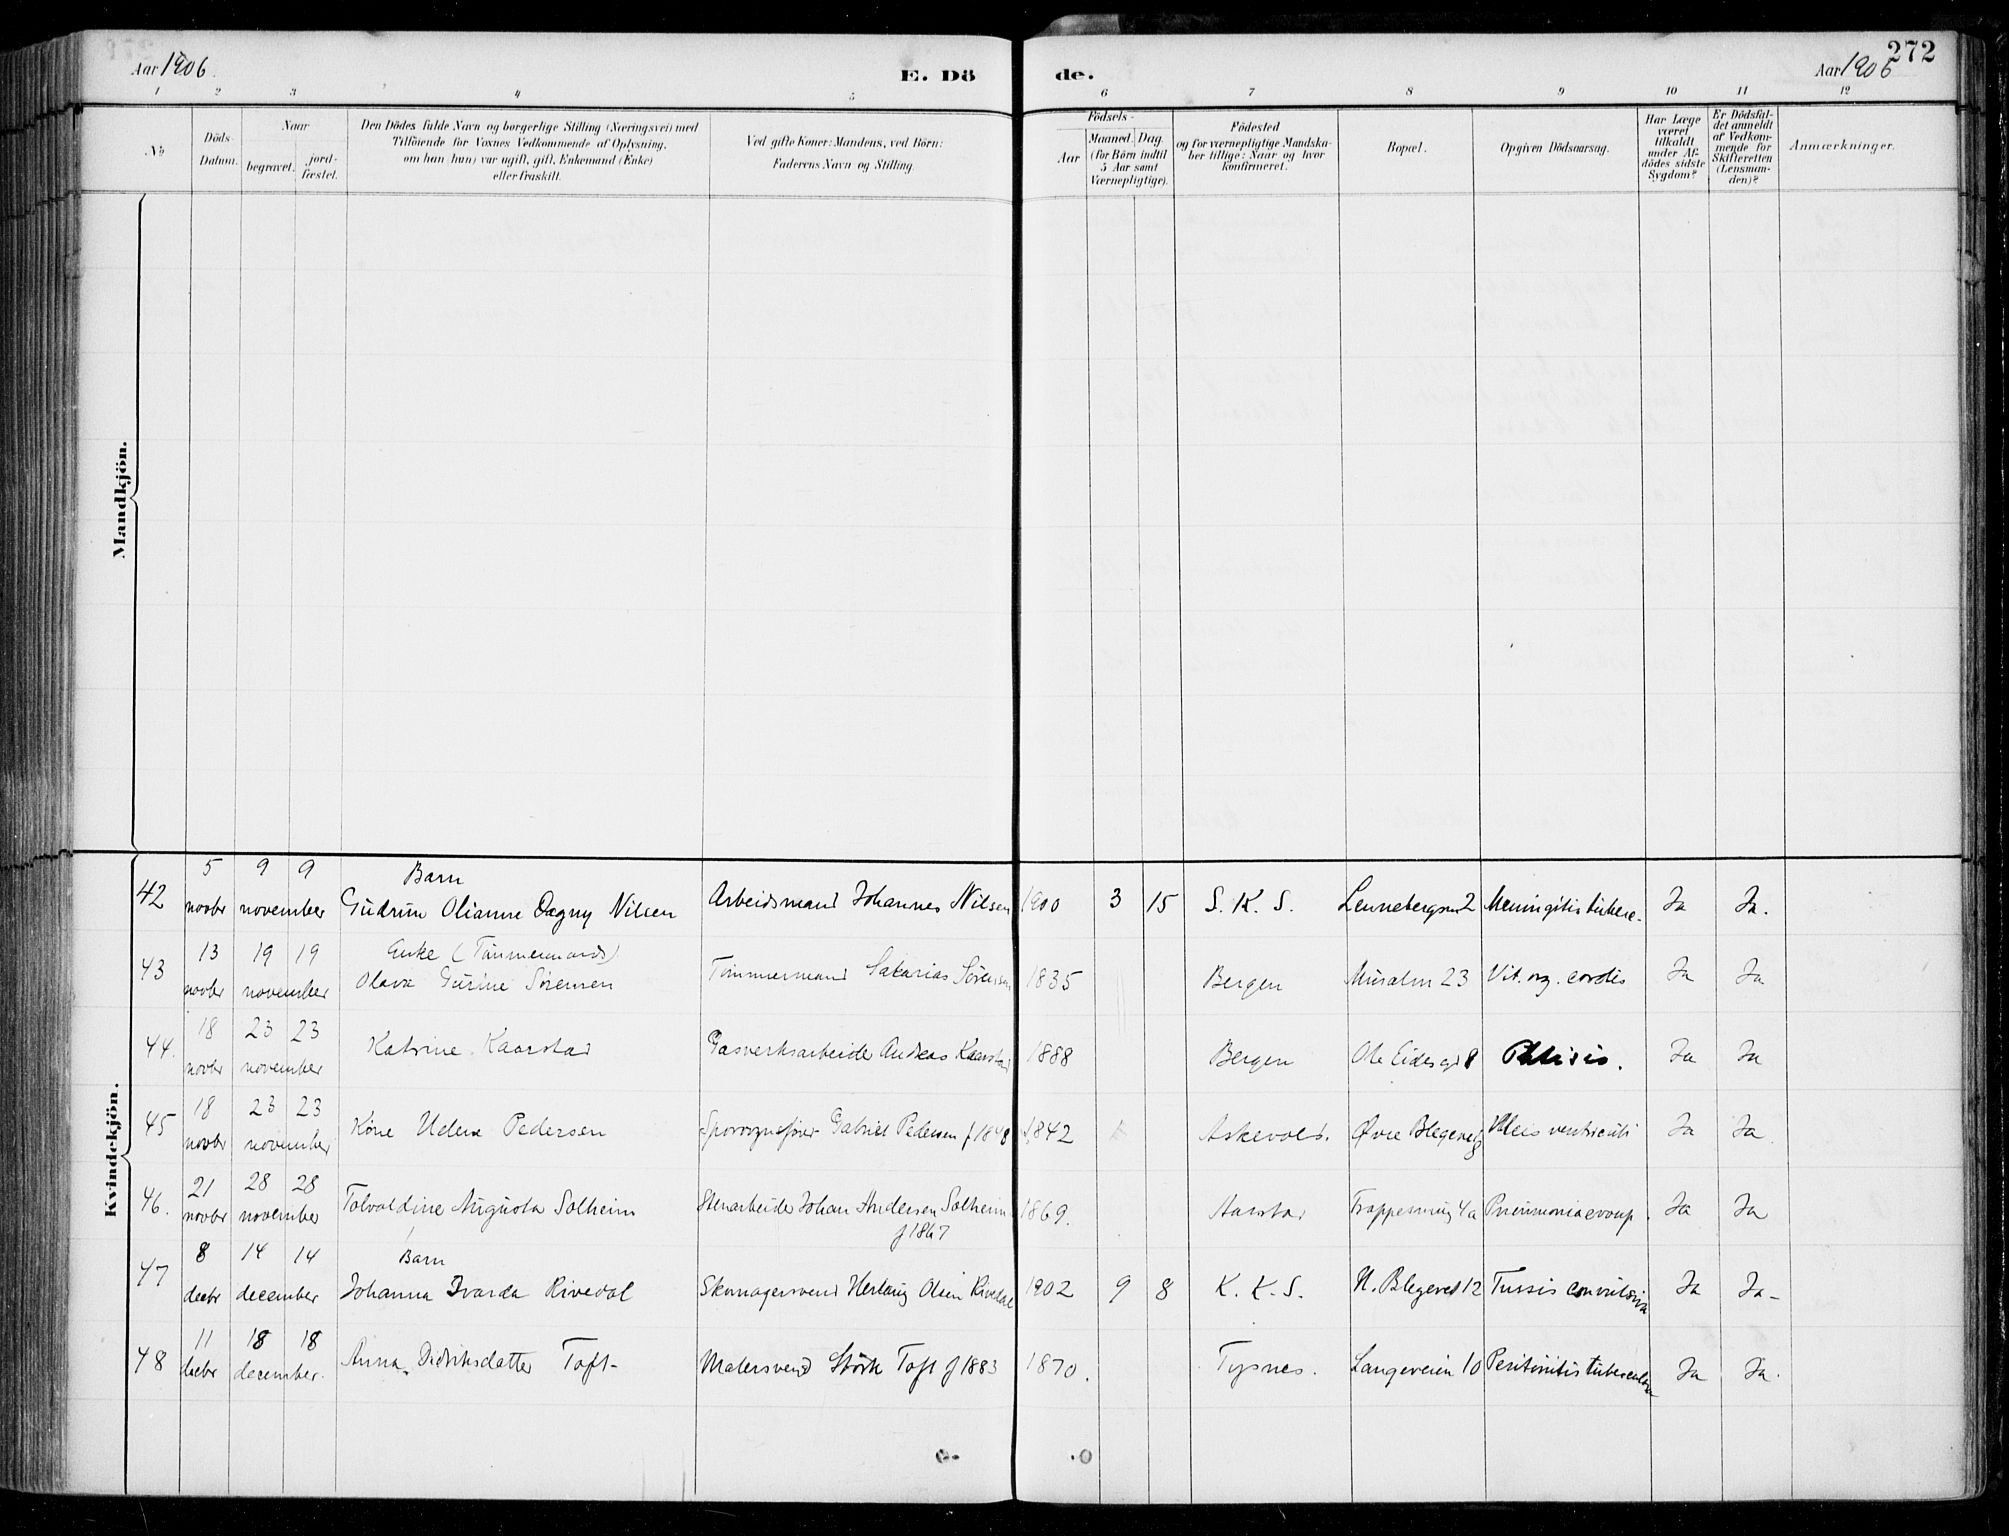 272
Aar 1906.
E. Dö
de.
Aar 1906
1 2 3 4 5 6 7 8 9 10 11 12
No
Döds-Datum.
Naar
begravet.
jord-fæstet.
Den Dödes fulde Navn og borgerlige Stilling (Næringsvei) med
Tilföiende for Voxnes Vedkommende af Oplysning,
om han (hun) var ugift, gift, Enkemand (Enke)
eller fraskilt.
Ved gifte Koner: Mandens, ved Börn:
Faderens Navn og Stilling.
Födsels-
Aar
Maaned. Dag.
(for Börn indtil
5 Aar samt
Værnepligtige).
Födested
og for værnepligtige Mandska-
ber tillige: Naar og hvor
konfirmeret.
Bopæl.
Opgiven Dödsaarsag.
Har Læge
været
tilkaldt
under Af-
dödes sidste
Sygdom?
Er Dödsfal-
det anmeldt
af Vedkom-
mende for
Skifteretten
(Lensman-
den)?
Anmærkninger.
Mandkjön.
Kvindekjön.
42 5 novbr 9 9 november Barn Gudrun Olianne Dagny Nilsen Arbeidsmand Johannes Nilsen 1900 3 15 S. K. S. 2 Meningitis Ja Ja.
43 13 novbr 19 19 november Enke (Tømmermands) Olava Gurine Sørensen Tømmermand Sakarias Sørensen 1835 Bergen 23 Vit. org. cordis Ja Ja
44. 18 novbr 23 23 november Katrine Kaarstad Gasverksarbeider Andreas Kaarstad 1888 Bergen Ole Eides gd 8 Phtisis. Ja Ja
45 18 novbr 23 23 november Helene Pedersen Sporvognsfører Gabriel Pedersen f 1848 1842 Askevold. Øvre Blegevei 8 ventriculi Ja Ja.
46. 21 novbr 28 28 november Tolvaldine Augusta Solheim Stenarbeider Johan Andersen Solheim f 1867 1869. Aarstad 4a Pneumonia croup. Ja Ja
47 8 decbr 14 14 december Barn Johanna Ivarda Rivedal Skomagersvend Herlaug Olsen Rivedal 1902 9 8 K. K. S. N. Blegevei 12 Tussis convulsiva Ja Ja-
48 11 decbr 18 18 december. Anna Didriksdatter Toft- Malersvend Størk Toft f 1883 1870. Tysnes. Langeveien 10 Peritonitis tuberculosa Ja Ja.